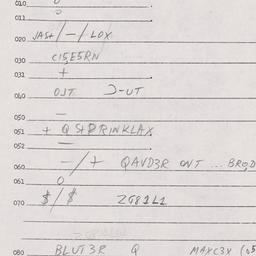 010
011
020 JAS+/-/LOX
030 C15E5RN
031 +
040 OJT J-UT
050 -
051 + Q S+DRINKLAX
052 -
060 -/+ QAVD3R ONT ... BROD
061 O
070 $/$ ZG81L1
080 BLUT3R Q MAXC3X (05